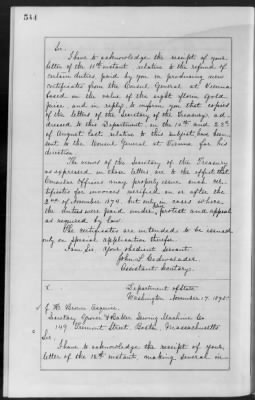 544
Sir.
I have to acknowledge the receipt of your
letter of the 11th instant relative to the refund of
certain duties, paid by you on producing new
certificates from the Consul General at Vienna
based on the value of the eight florin gold
piece and in reply to inform you that copies
of the letters of the Secretary of the Treasury ad-
dressed to this Department on the 10th and 28th
of August last, relative to this subject, have been
sent to the Consul General at Vienna for his
direction.
The views of the Secretary of the Treasury
as expressed in those letters are to the effect that
Consular Officers may properly issue such cer-
tificates for invoices verified on or after the
2nd of November 1874, but only in cases where
the duties were paid under protest and appeal
as required by law.
The certificates are intended to be issued
only on special application therefor.
I am Sir Your obedient Servant.
John L. Cadwalader.
Assistant Secretary.
Department of State
Washington November 17. 1875.
Brown Esquire,
Secretary Grover & Baker Sewing Machine Co
149 Tremont Street. Boston. Massachusetts
Sir,
I have to acknowledge the receipt of your
letter of the 12th instant, making several in-